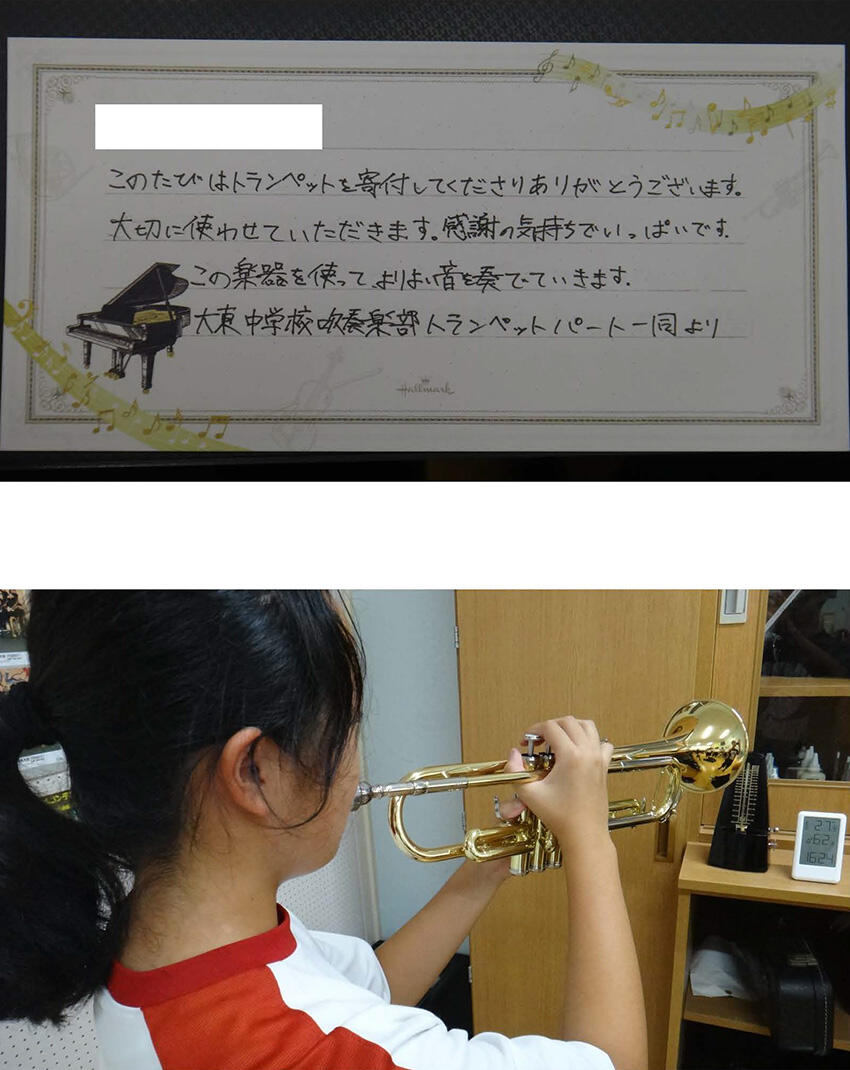 このたびはトランペットを寄付してくださりありがとうございます。
大切に使わせていただきます。感謝の気持ちでいっぱいです。
この楽器を使ってよりよい音を奏でていきます。
大東中学校吹奏楽部トランペットパート一同より
Hallmark
27
62
1624